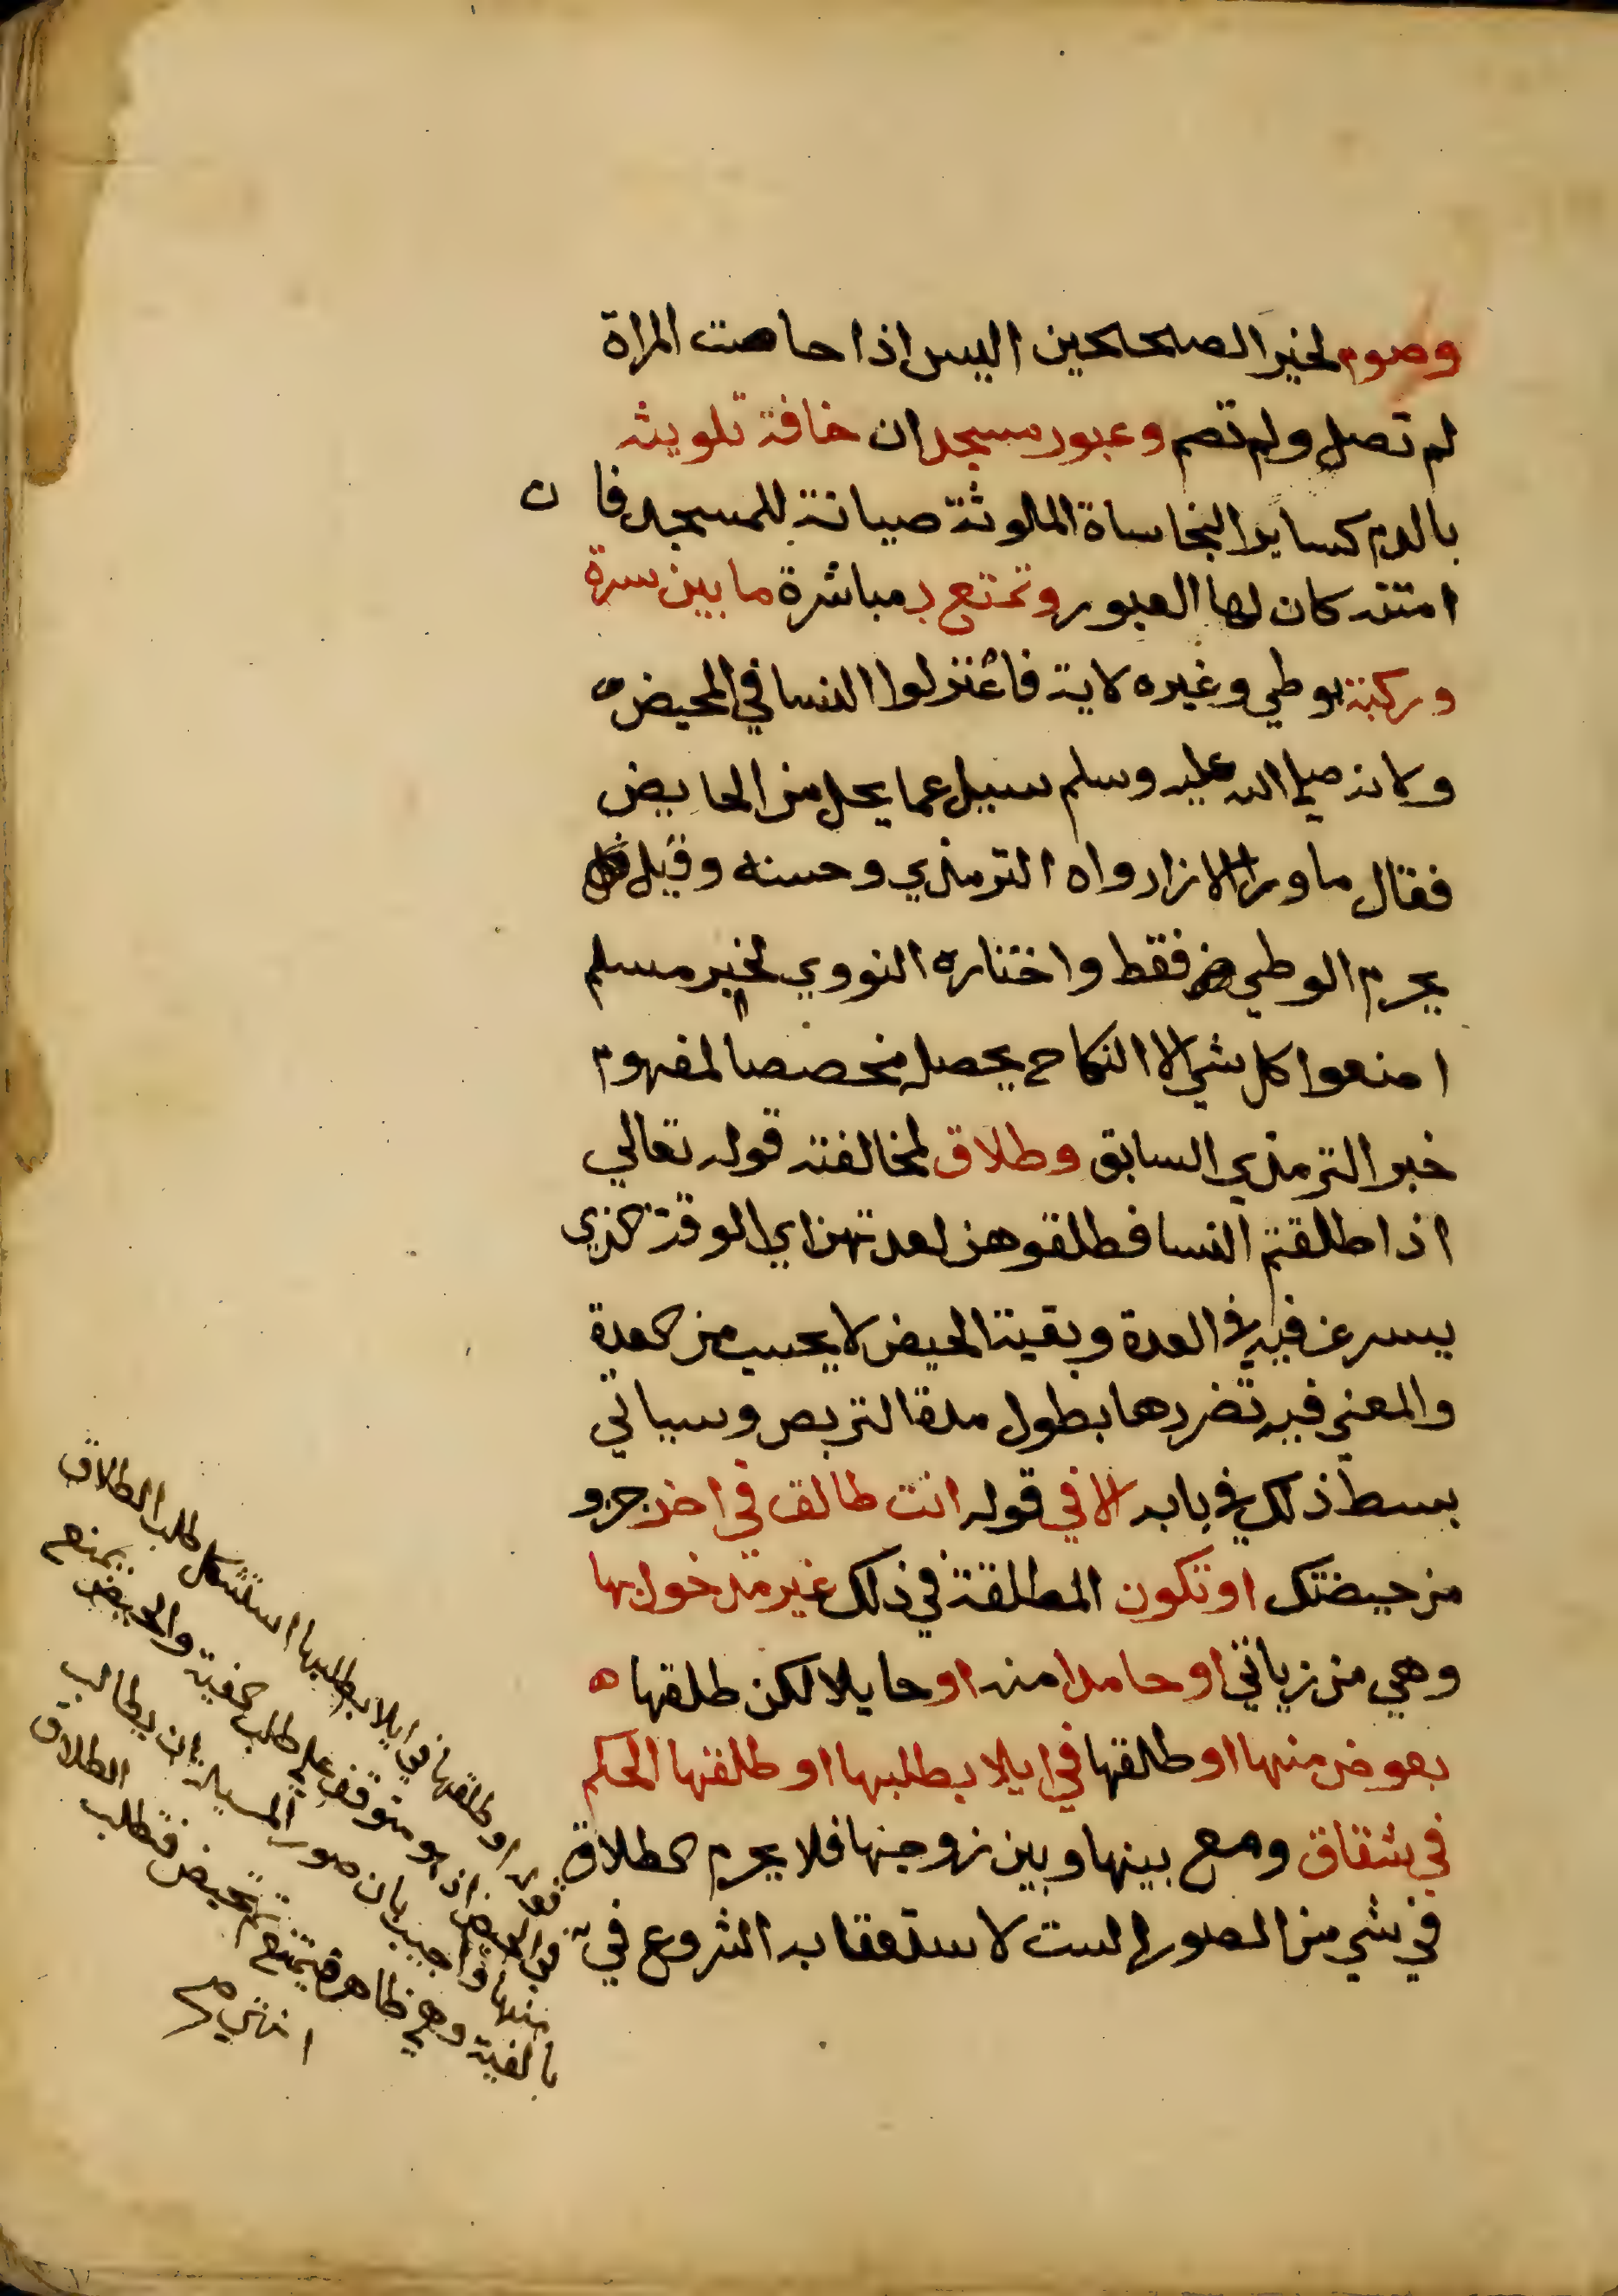 وصوم لخبر الصحيحين اليس اذا حاضت المراة
لم تصل ولم تصم وعبور مسجد ان خافت تلويثه
بالدم كساير النجاساة الملوثة صيانة للمسجد فا ن
امنته كان لها العبور وتمتع بمباشرة ما بين سرة
وركبة بوطي وغيره لاية فاعتزلوا النسا في المحيض
ولانه صلى الله عليه وسلم سيل عما يحل من الحايض
فقال ما ورا الازار رواه الترمذي وحسنه وقيل
يحرم الوطي فقط واختاره النووي لخبر مسلم
اصنعوا كل شي الا النكاح يجعله مخصصا لمفهوم
خبر الترمذي السابق وطلاق لمخالفته قوله تعالي
اذا طلقتم النسا فطلقوهن لعدتهن اي الوقت الذي
يسرعن فيه في العدة وبقية الحيض لا يحسب من العدة
والمعني فيه تضررها بطول مدة التربص وسياتي
بسط ذلك في بابه الا في قوله انت طالق في اخر جزو
من حيضتك او تكون المطلقة في ذلك غير مدخول بها
وهي من زياتي او حاملا منه او حايلا لكن طلقها ه
بعوض منها او طلقها في ايلا بطلبها او طلقها الحكم
في شقاق وقع بينها وبين زوجها فلا يحرم الطلاق
في شي من الصور الست لاستعقابه الشروع في
قوله او طلقها في ايلا بطلبها استشكل طلب الطلاق
في الحيض اذ هو متوقف على طلب الفية والحيض يمنع
منها واجيب بان صور المسيلة ان يطالب
بالفية وهي طاهر فيمتنع ثم تحيض فتطلب الطلاق
انتهي م ر